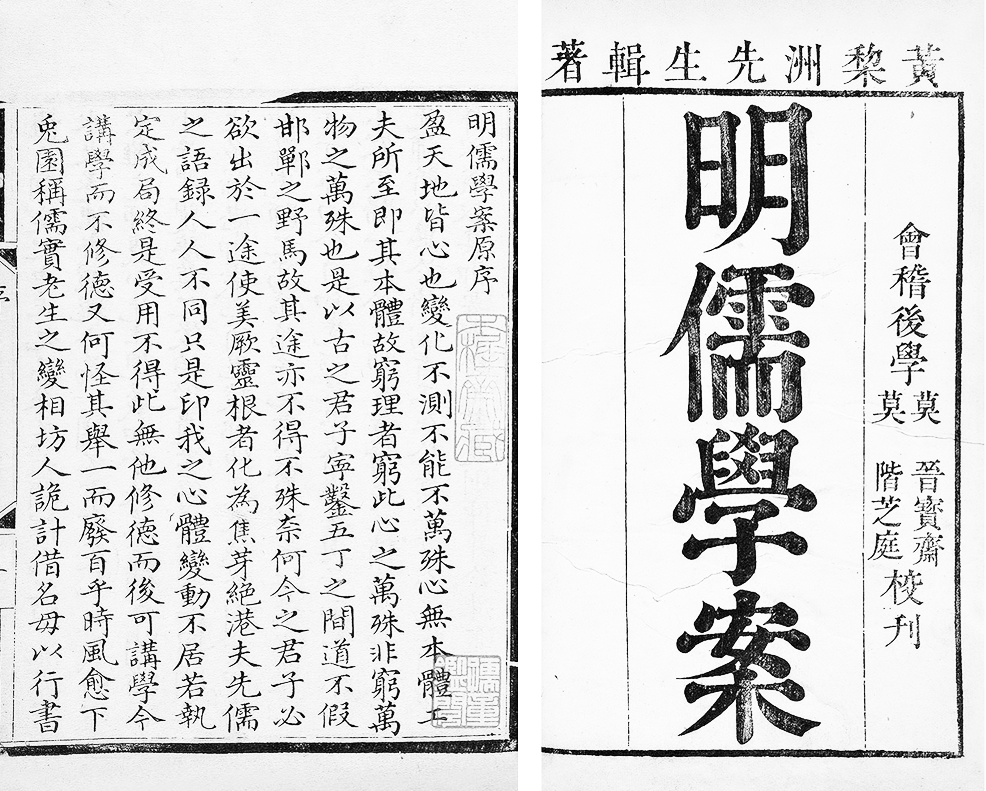 黃棃洲先生輯著
會稽後學
莫晉寶齋
莫階芝庭
校刊
明儒學案
明儒學案原序
盈天地皆心也變化不測不能不萬殊心無本體工
夫所至即其本體故窮理者窮此心之萬殊非窮萬
物之萬殊也是以古之君子寧鑿五丁之間道不假
邯鄲之野馬故其途亦不得不殊奈何今之君子必
欲出於一途使美厥靈根者化為焦芽絕港夫先儒
之語録人人不同只是印我之心體變動不居若執
定成局終是受用不得此無他修德而後可講學今
講學而不修德又何怪其舉一而廢百乎時風愈下
兎園稱儒實老生之變相坊人詭計借名毋以行書